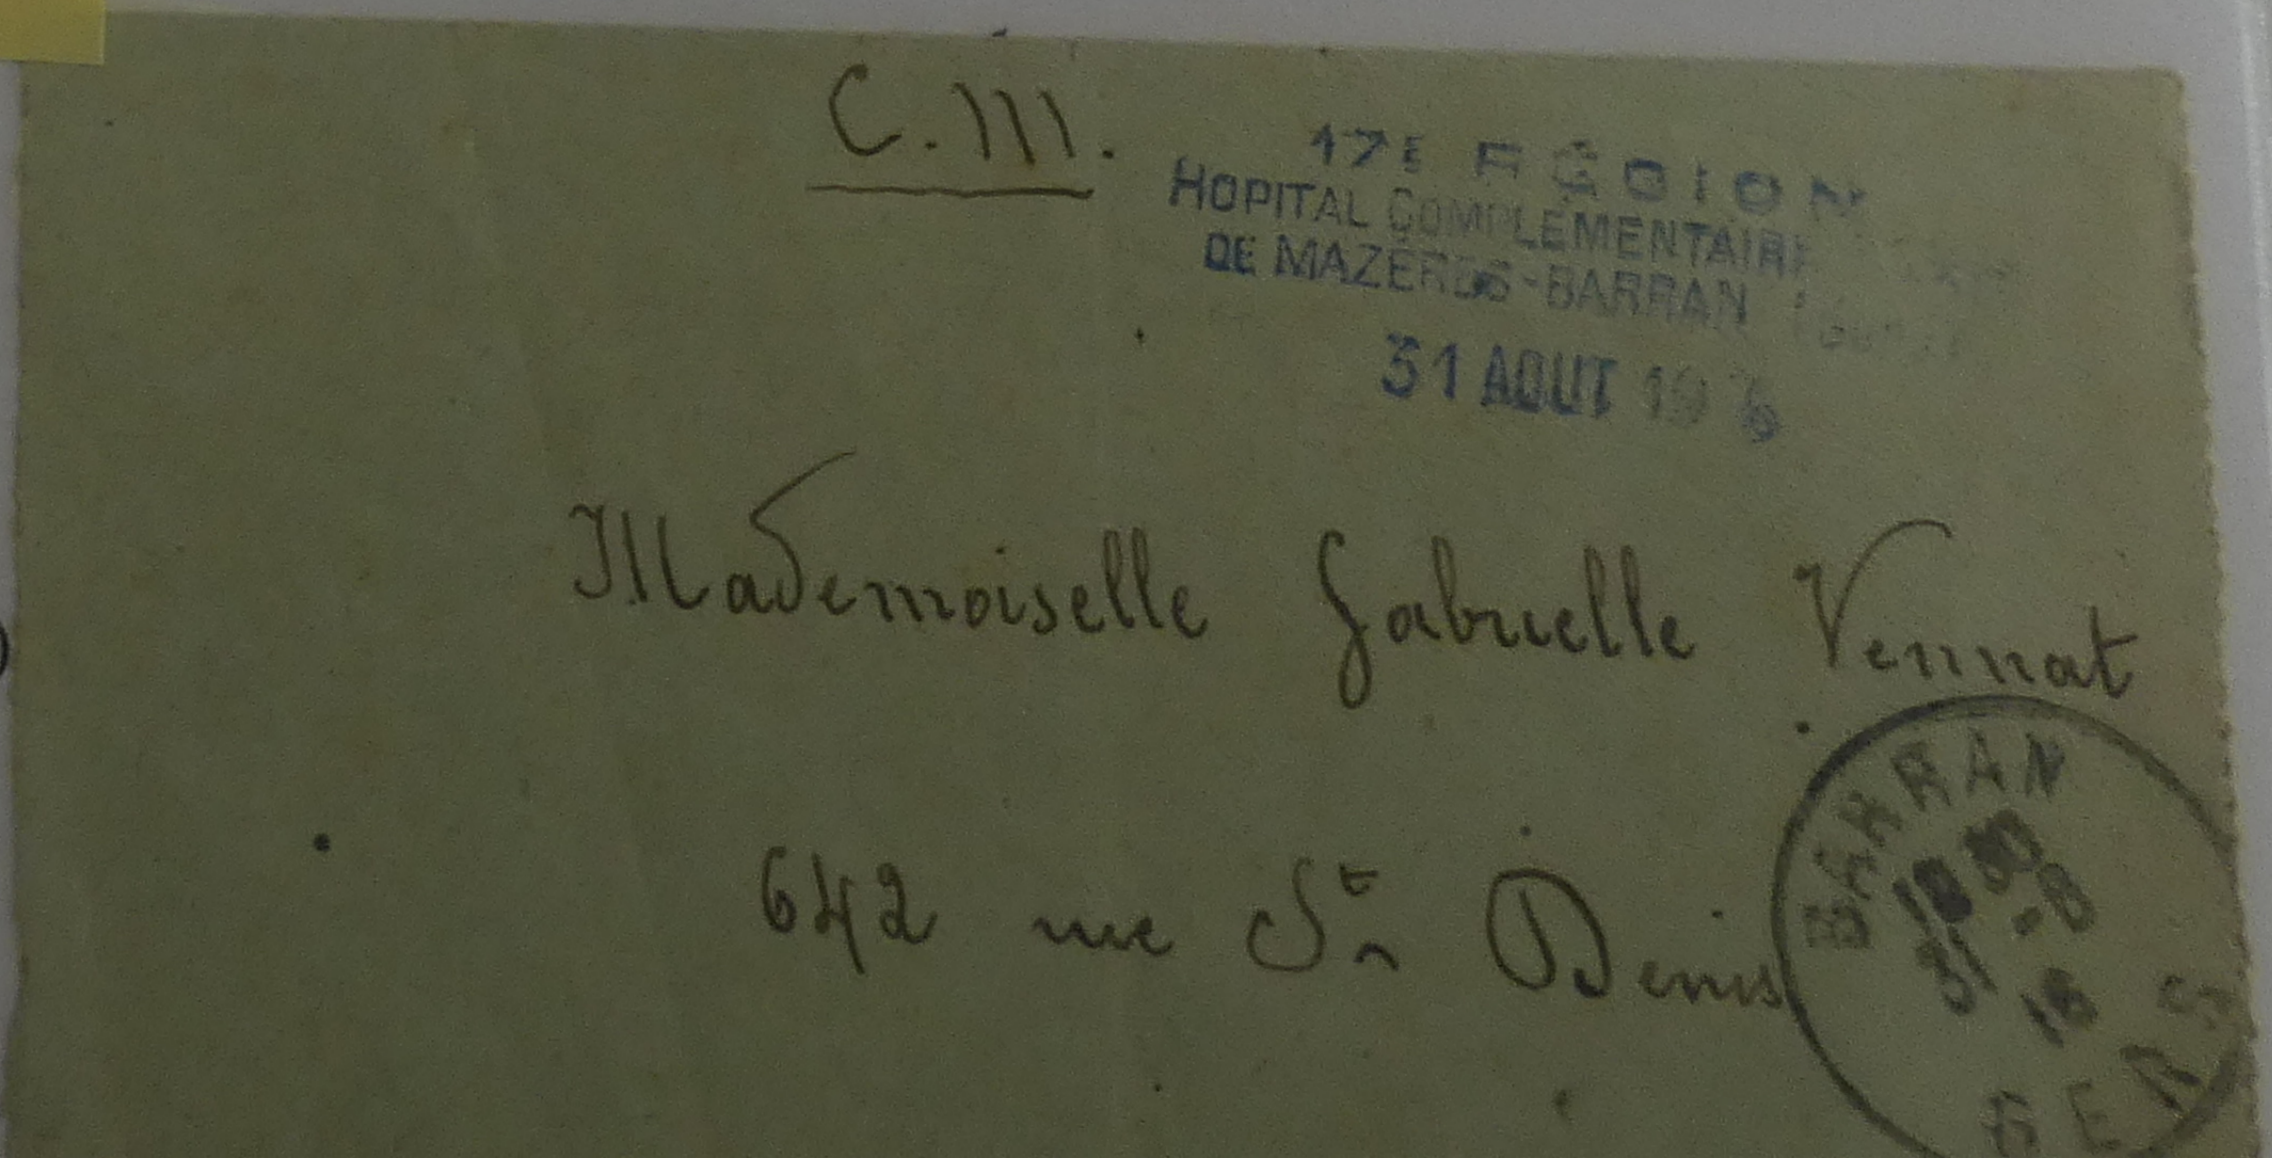 C.111.
17E REGION
HOPITAL COMPLEMENTAIRE
DE MAZERES-BARRAN
31 AOUT 1916
Mademoiselle Gabrielle Vennat
642 rue St Denis
BARRAN
18 30
31 -8
16
GERS